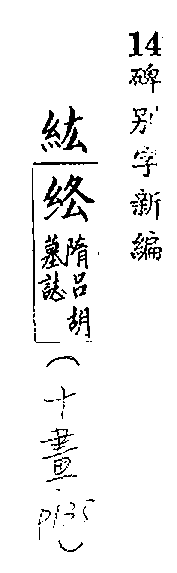 14碑別字新編
紘
隋呂胡
墓誌
（十畫
P135）